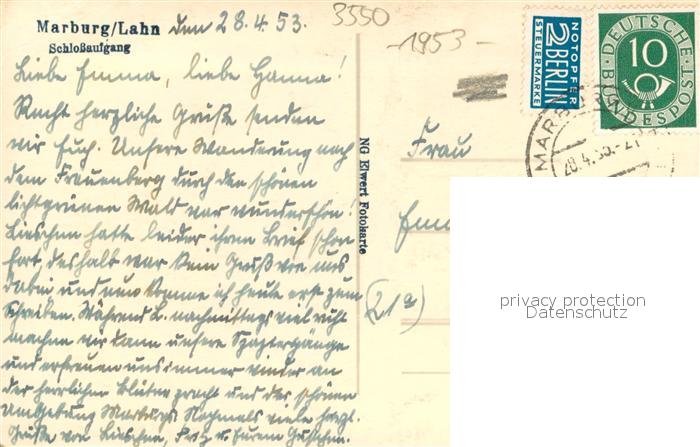 Marburg/Lahn den 28.4.53.
Schloßaufgang
3550
-1953-
Liebe Emma, liebe Hanna!
Recht herzliche Grüße senden
wir Euch. Unsere Wanderung nach
dem Frauenberg durch den schönen
lichtgrünen Wald war wunderschön!
Lieschen hatte leider ihren Brief schon
fort, deshalb war kein Gruß von uns
dabei und nun komme ich heute erst zum
Schreiben. Während L. nachmittags viel ruht
machen wir dann unsere Spaziergänge
und erfreuen uns immer wieder an
der herrlichen Blütenpracht und der schönen
Umgebung Marburgs. Nochmals viele herzl.
Grüße von Lieschen, Fritz u. Eurem
NG Elwert Fotokarte
NOTOPFER
2 BERLIN
STEUERMARKE
DEUTSCHE
10
BUNDESPOST
MARBURG
28.4.53.-21
Frau
(21a)
privacy protection
Datenschutz